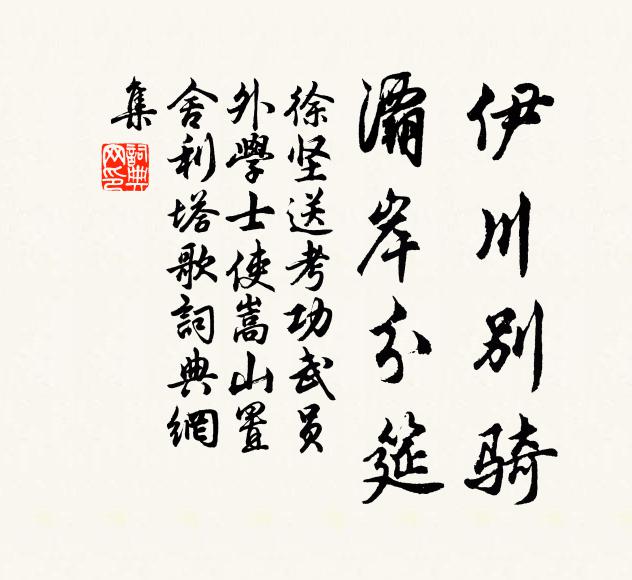 伊川别骑
灞岸分筵
徐坚送考功武员
外學士使嵩山置
舍利塔歌詞典網
集
詞典網印